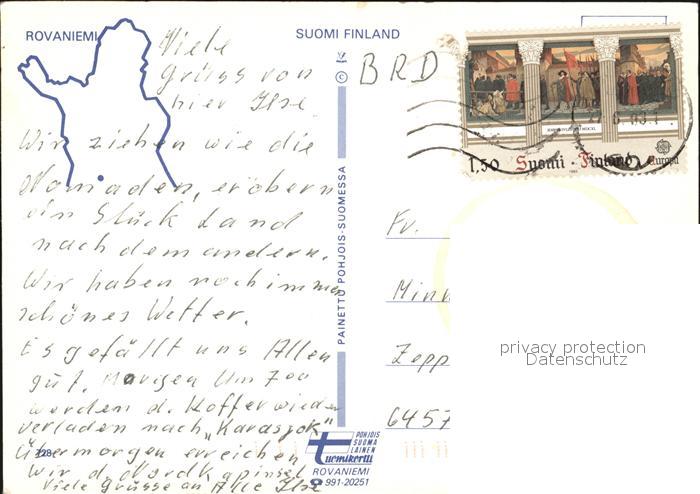 ROVANIEMI
SUOMI FINLAND
Viele
Grüsse von
hier Ilse
Wir ziehen wie die
Nomaden, erobern
ein Stück Land
nach dem andern.
Wir haben noch immer
schönes Wetter.
Es gefällt uns Allen
gut. Morgen um 7 00
werden d. Koffer wieder
verladen nach "Karasjok"
Übermorgen erreichen
Wir d. Nordkapinsel
Viele Grüsse an Alle Ilse
©
PAINETTO POHJOIS-SUOMESSA
BRD
1,50 Suomi · Finland
Europa
Fr.
Minn
Zepp
6457
privacy protection
Datenschutz
POHJOIS
SUOMA
LAINEN
Tuomikortti
ROVANIEMI
991-20251